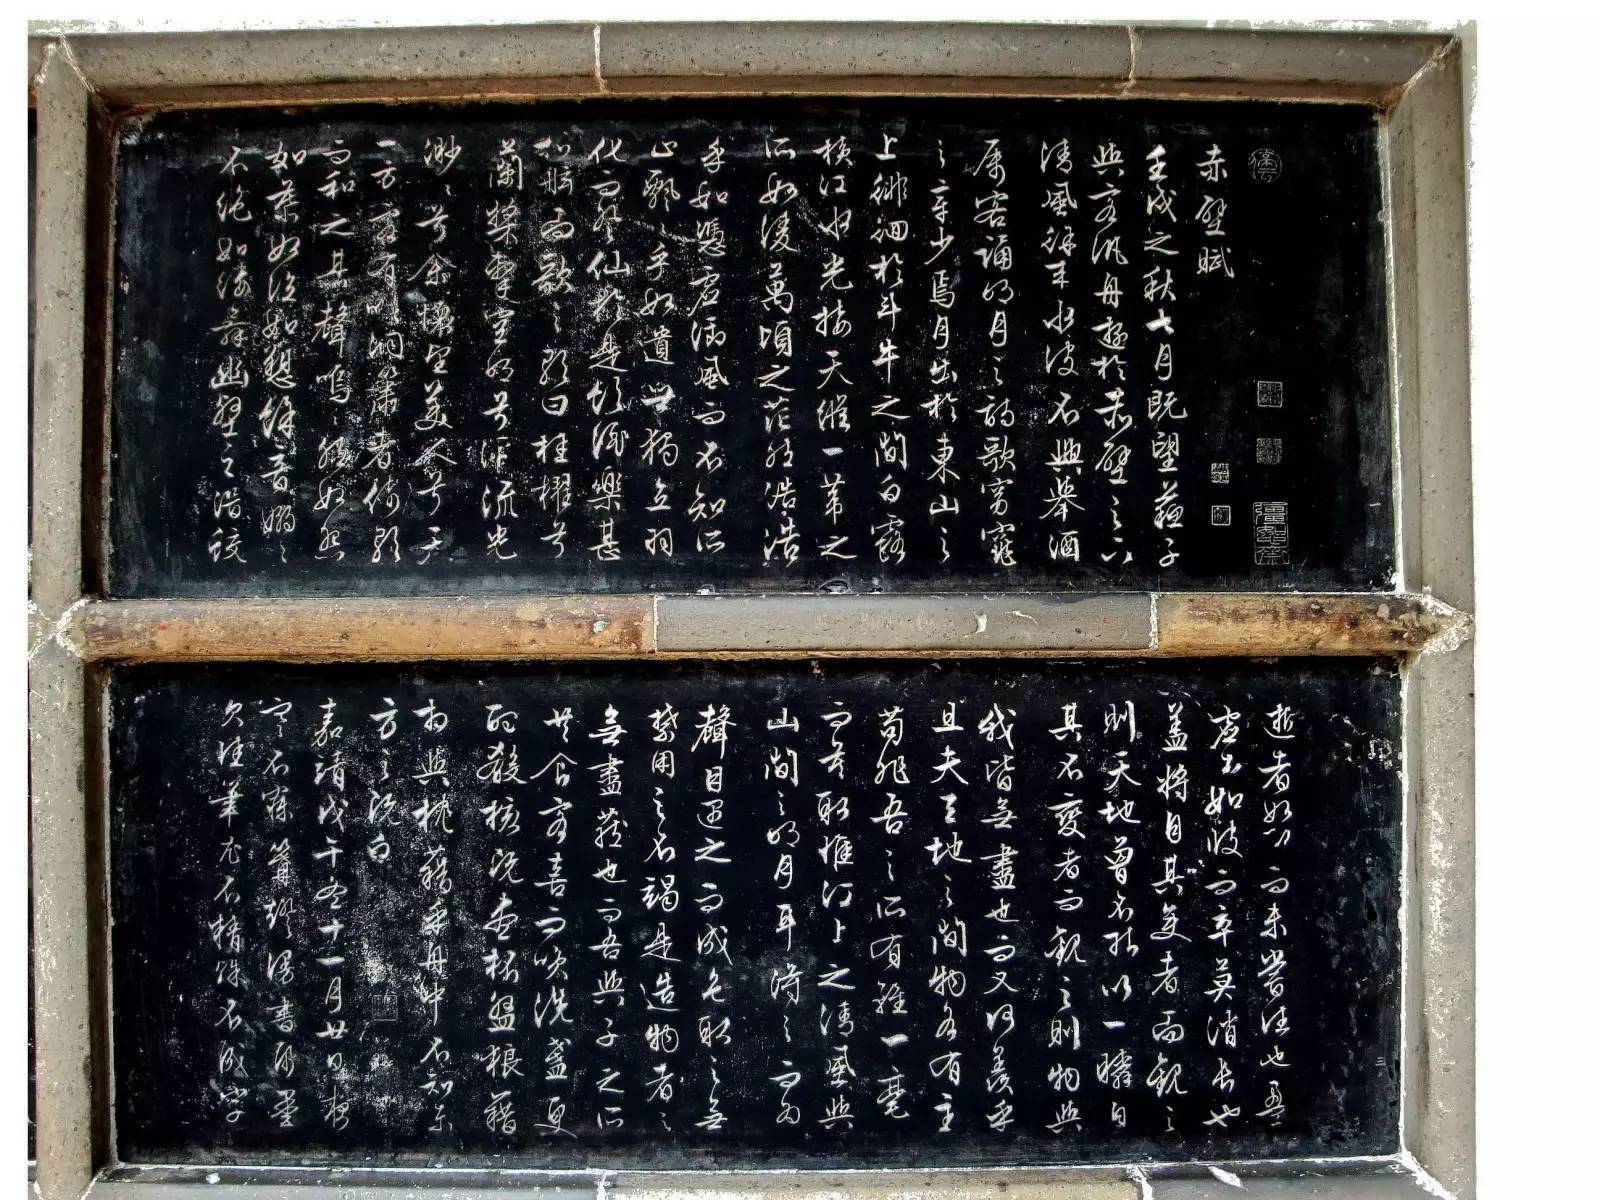 赤壁賦
壬戌之秋七月既望蘇子
與客汎舟遊於赤壁之下
清風徐來水波不興舉酒
屬客誦明月之詩歌窈窕
之章少焉月出於東山之
上徘徊於斗牛之間白露
橫江水光接天縱一葦之
所如凌萬頃之茫然浩浩
乎如馮虛御風而不知所
止飄乎如遺世獨立羽
化而登仙於是飲酒樂甚
扣舷而歌之歌曰桂櫂兮
蘭槳擊空明兮泝流光
渺渺兮余懷望美人兮天
一方客有吹洞簫者倚歌
而和之其聲嗚嗚然如怨
如慕如泣如愬餘音嫋嫋
不絕如縷舞幽壑之潛蛟
一
逝者如斯而未嘗往也盈
虛者如彼而卒莫消長也
蓋將自其變者而觀之
則天地曾不能以一瞬自
其不變者而觀之則物與
我皆無盡也而又何羨乎
且夫天地之間物各有主
苟非吾之所有雖一毫
而莫取惟江上之清風與
山間之明月耳得之而為
聲目遇之而成色取之無
禁用之不竭是造物者之
無盡藏也而吾與子之所
共食客喜而笑洗盞更
酌殽核既盡杯盤狼藉
相與枕藉乎舟中不知東
方之既白
嘉靖戊午冬十一月廿日夜
寒不寐篝燈漫書紙墨
欠佳筆尤不精殊不成字
三